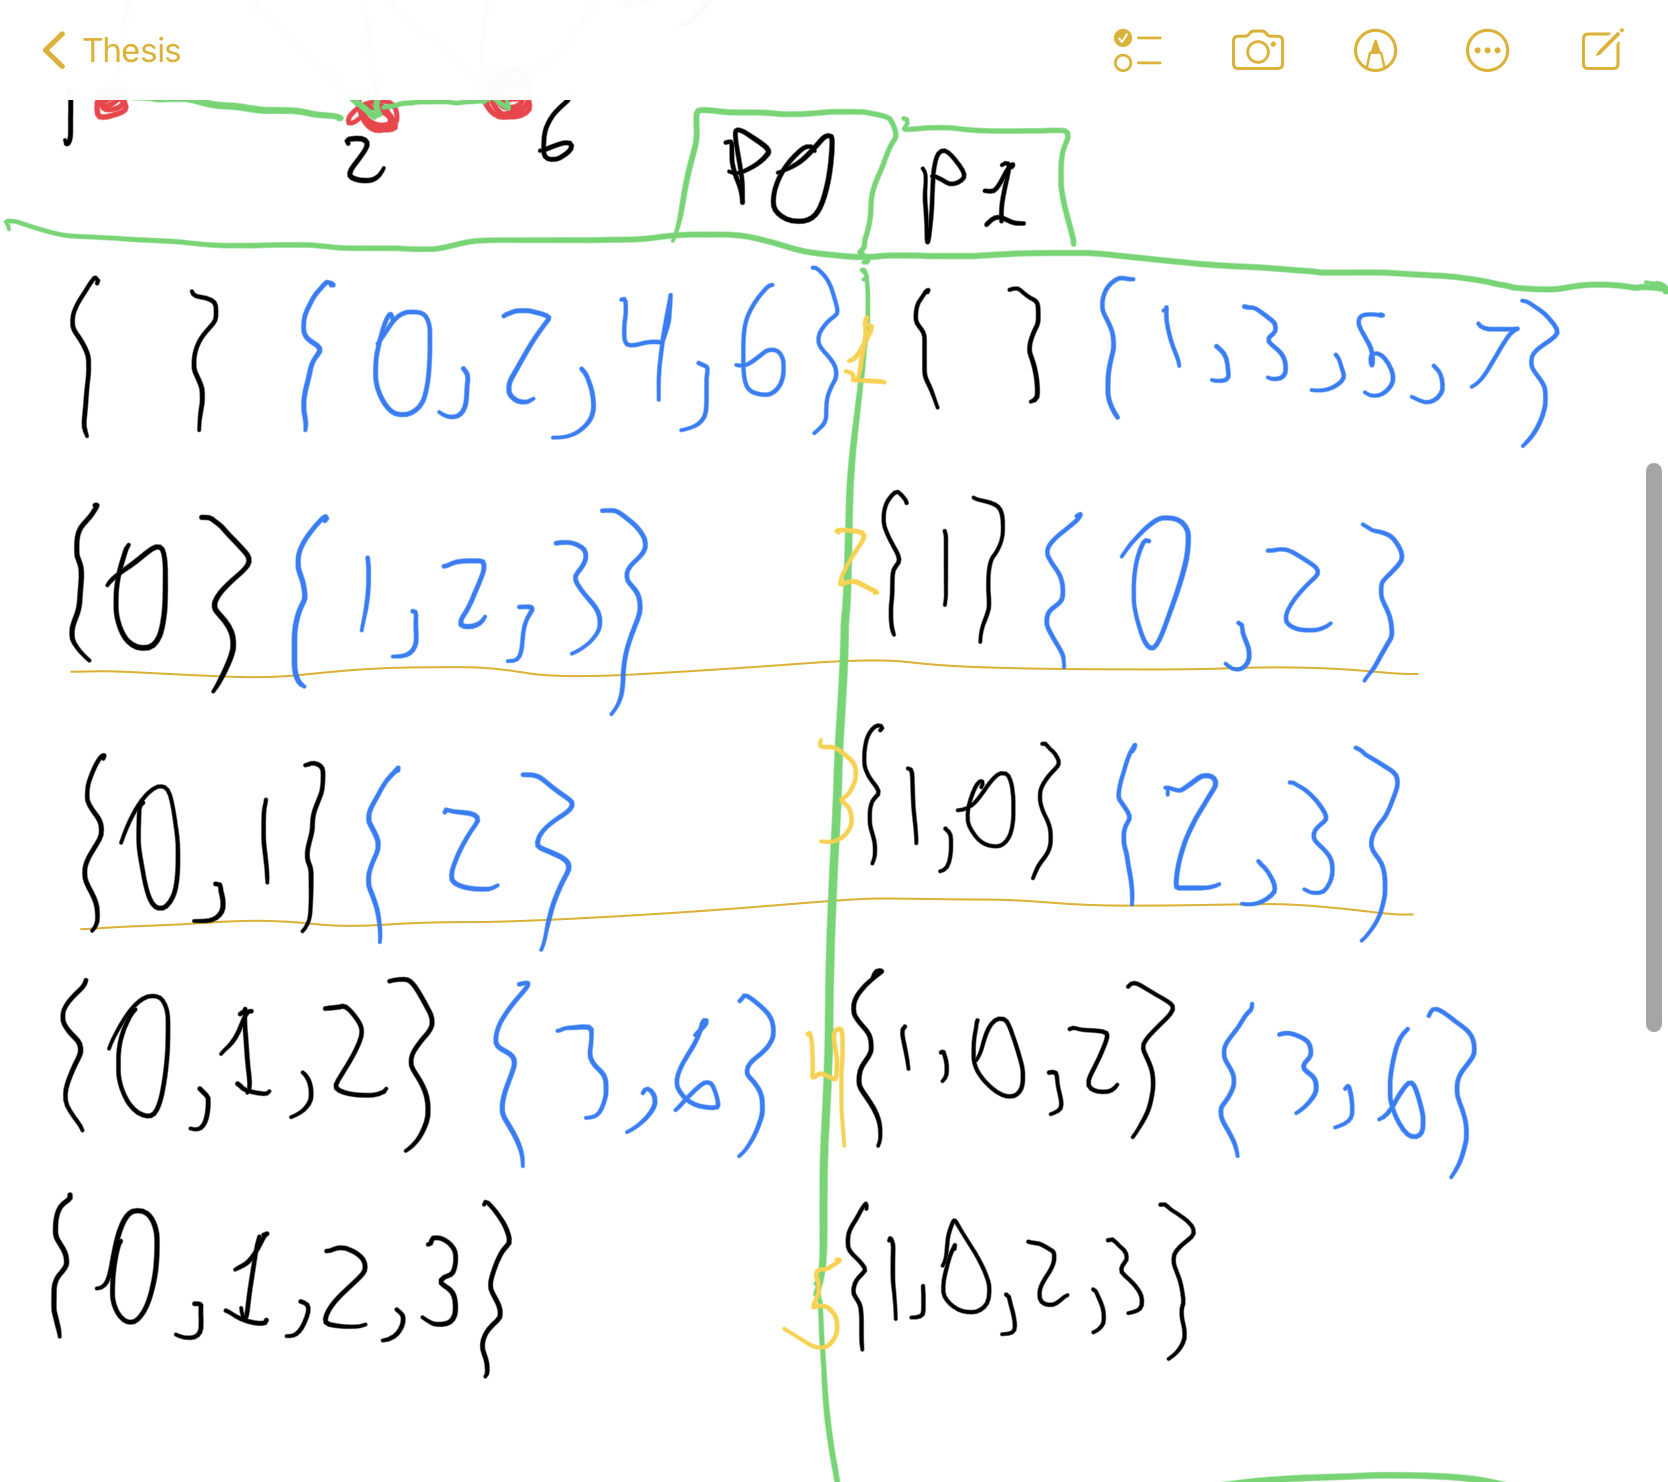 Thesis
1
2
6
P0 P1
{ } {0,2,4,6} 1 { } {1,3,5,7}
{0} {1,2,3} 2 {1} {0,2}
{0,1} {2} 3 {1,0} {2,3}
{0,1,2} {3,6} 4 {1,0,2} {3,6}
{0,1,2,3} 5 {1,0,2,3}